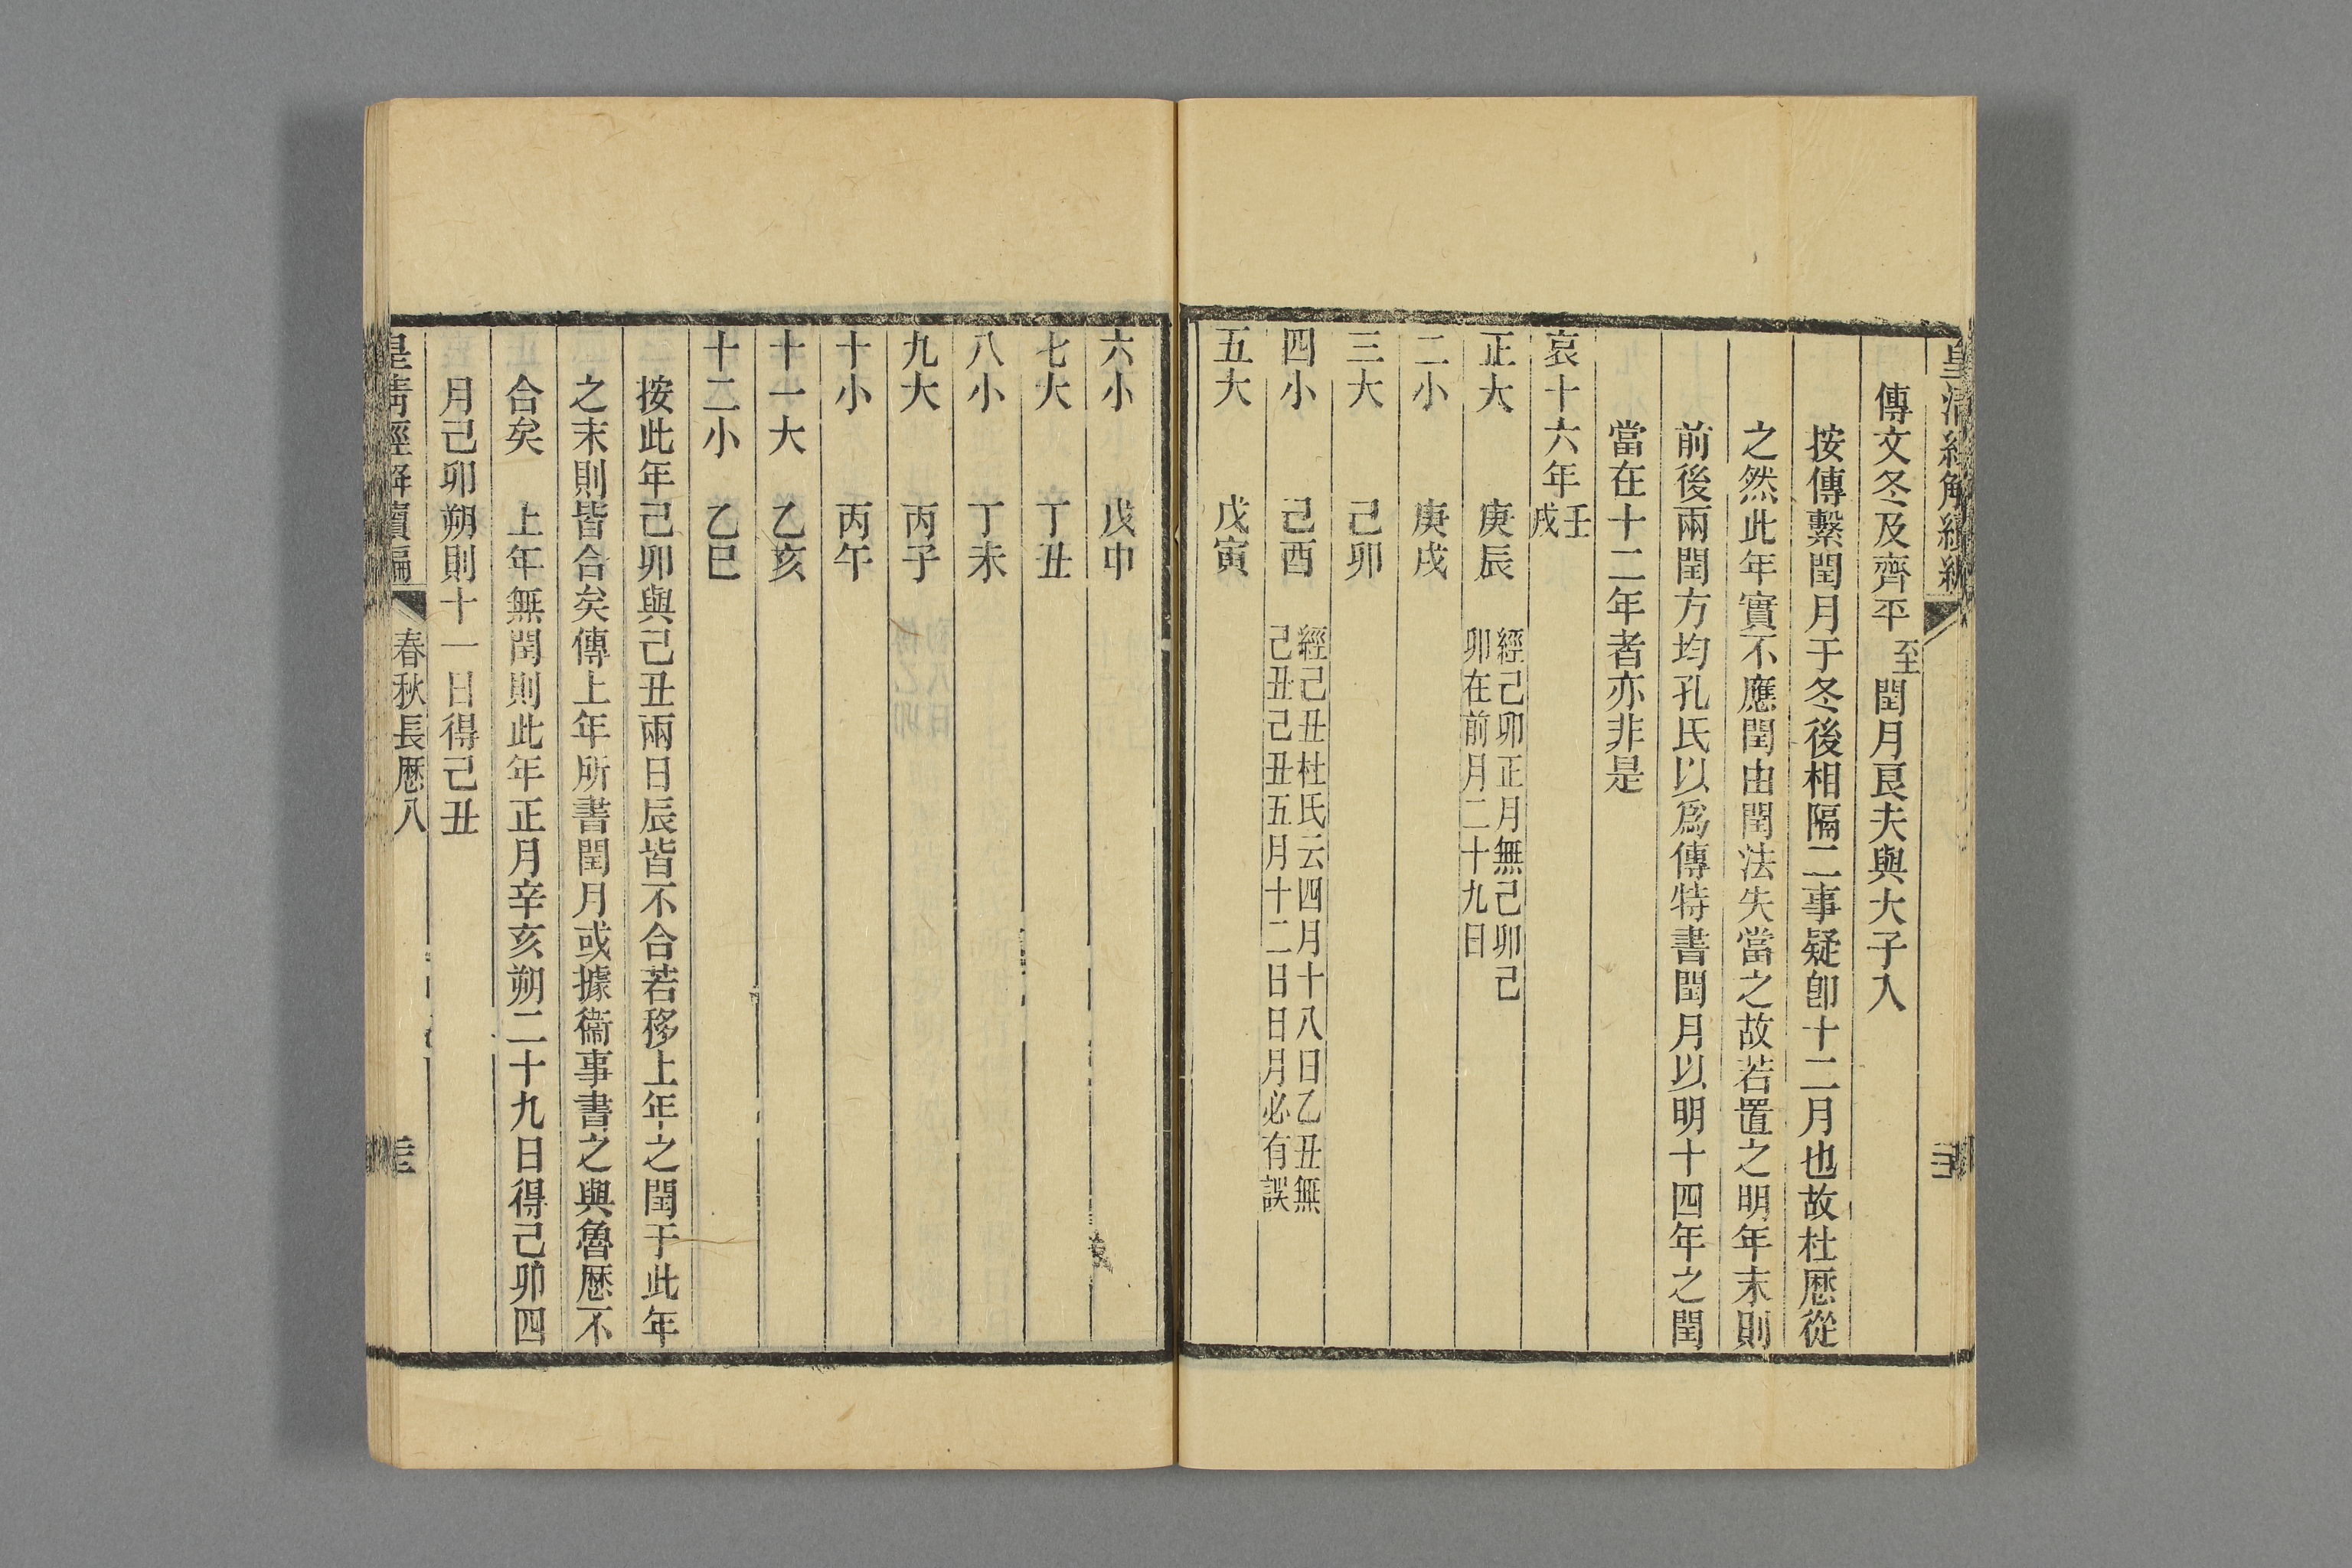 皇清經解續編
傳文冬及齊平至閏月良夫與大子入
按傳繫閏月于冬後相隔二事疑卽十二月也故杜厯從
之然此年實不應閏由閏法失當之故若置之明年末則
前後兩閏方均孔氏以爲傳特書閏月以明十四年之閏
當在十二年者亦非是
哀十六年壬戌
正大 庚辰 經己卯正月無己卯己
卯在前月二十九日
二小 庚戌
三大 己卯
四小 己酉 經己丑杜氏云四月十八日乙丑無
己丑己丑五月十二日日月必有誤
五大 戊寅
六小 戊申
七大 丁丑
八小 丁未
九大 丙子
十小 丙午
十一大 乙亥
十二小 乙巳
按此年己卯與己丑兩日辰皆不合若移上年之閏于此年
之末則皆合矣傳上年所書閏月或據衞事書之與魯厯不
合矣 上年無閏則此年正月辛亥朔二十九日得己卯四
月己卯朔則十一日得己丑
皇清經解續編 春秋長厯八